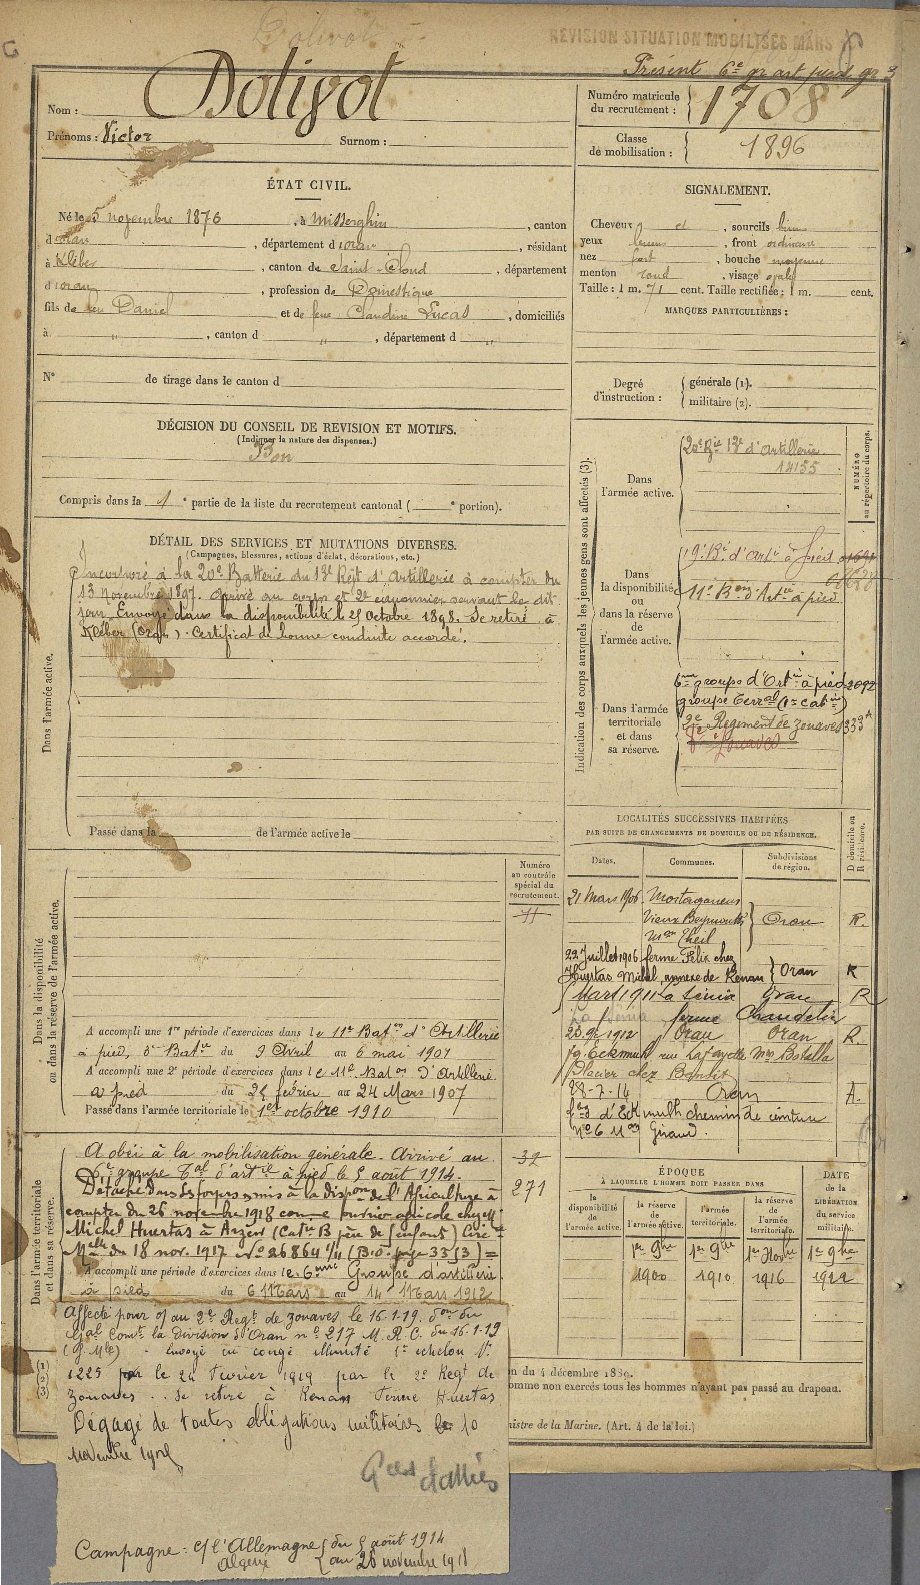 Dolivot
REVISION SITUATION MOBILISÉS MARS
Présent 6e gr art pied
Nom : Dolivot
Prénoms : Victor Surnom :
Numéro matricule du recrutement : 1708
Classe de mobilisation : 1896
ÉTAT CIVIL.
Né le 5 novembre 1876, à Misserghin, canton
d'Oran, département d'Oran, résidant
à Kléber, canton de Saint-Cloud, département
d'Oran, profession de Domestique
fils de feu Daniel et de feue Claudine Lucas, domiciliés
à " , canton d " , département d "
N° de tirage dans le canton d
SIGNALEMENT.
Cheveux , sourcils
yeux , front ordinaire
nez fort , bouche moyenne
menton rond , visage ovale
Taille : 1 m. 71 cent. Taille rectifiée : 1 m. cent.
MARQUES PARTICULIÈRES :
Degré d'instruction : générale (1). militaire (2).
DÉCISION DU CONSEIL DE REVISION ET MOTIFS.
(Indiquer la nature des dispenses.)
Bon
Compris dans la 1e partie de la liste du recrutement cantonal ( e portion).
DÉTAIL DES SERVICES ET MUTATIONS DIVERSES.
(Campagnes, blessures, actions d'éclat, décorations, etc.)
Dans l'armée active.
Incorporé à la 20e Batterie du 13e Régt d'Artillerie à compter du
13 novembre 1897. Arrivé au corps et 2e canonnier servant le dit
jour. Envoyé dans la disponibilité le 25 octobre 1898. Se retire à
Kléber (Oran). Certificat de bonne conduite accordé.
Passé dans la de l'armée active le
Indication des corps auxquels les jeunes gens sont affectés (3).
NUMÉRO au répertoire du corps.
Dans l'armée active.
20e Bie 13e d'artillerie
14155
Dans la disponibilité ou dans la réserve de l'armée active.
19e Bie d'Artie à pied
11e Bon d'Artie à pied
Dans l'armée territoriale et dans sa réserve.
6me groupe d'Artie à pied 2092
groupe Terral (1e Catie)
2e Régiment de Zouaves 333A
2e Zouaves
LOCALITÉS SUCCESSIVES HABITÉES
PAR SUITE DE CHANGEMENTS DE DOMICILE OU DE RÉSIDENCE.
Dates. Communes. Subdivisions de région. D domicile ou R résidence.
21 Mars 1906 Mostaganem
Vieux Beymouth Oran R.
Mon Theil
22 Juillet 1906 ferme Félix chez
Huertas Michel, annexe de Renan Oran R
Mars 1911 La Sénia Oran R
La Sénia ferme Chaudelin
1912 Oran Oran R.
fg Eckmuhl, rue Lafayette Mon Botella
28-7-14 Oran A.
d'Eckmuhl chemin de ceinture
N° 6 Mon Giraud.
Numéro au contrôle spécial du recrutement.
Dans la disponibilité ou dans la réserve de l'armée active.
A accompli une 1re période d'exercices dans le 11e Baton d'Artillerie
à pied, 5e Batie du 9 Avril au 6 mai 1901
A accompli une 2e période d'exercices dans le 11e Baton d'Artillerie
à pied du 25 février au 24 Mars 1907
Passé dans l'armée territoriale le 1er octobre 1910
Dans l'armée territoriale
A obéi à la mobilisation générale. Arrivé au
6e groupe Tal d'artie à pied le 5 août 1914.
32
271
Détaché dans ses foyers et mis à la dispon de l'Agriculture à
compter du 26 novembre 1918 comme ouvrier agricole chez Mr
Michel Huertas à Arzew (Catie B père de 5 enfants) Circ
Melle du 18 nov. 1917 N° 26864 1/11 (B.O. page 3353) =
A accompli une période d'exercices dans le 6me Groupe d'artillerie
à pied du 6 Mars au 14 Mars 1912
ÉPOQUE
À LAQUELLE L'HOMME DOIT PASSER DANS
la disponibilité de l'armée active.
la réserve de l'armée active.
l'armée territoriale.
la réserve de l'armée territoriale.
DATE de la LIBÉRATION du service militaire.
1er 9bre 1900
1er 9bre 1910
1er Novbre 1916
1er 9bre 1922
Affecté pour o/ au 2e Régt de Zouaves le 16-1-19. don du
Gal Comt la Division d'Oran n° 217 M.R.C. du 16-1-19
Envoyé en congé illimité 1er échelon N°
1225 le 24 Février 1919 par le 2e Régt de
Zouaves. Se retire à Renan Ferme Huertas
Dégagé de toutes obligations militaires le 10
novembre
du 4 décembre 1889.
omme non exercés tous les hommes n'ayant pas passé au drapeau.
nistre de la Marine. (Art. 4 de la loi.)
Campagne : c/ l'Allemagne du 5 août 1914
Algérie au 26 novembre 1918